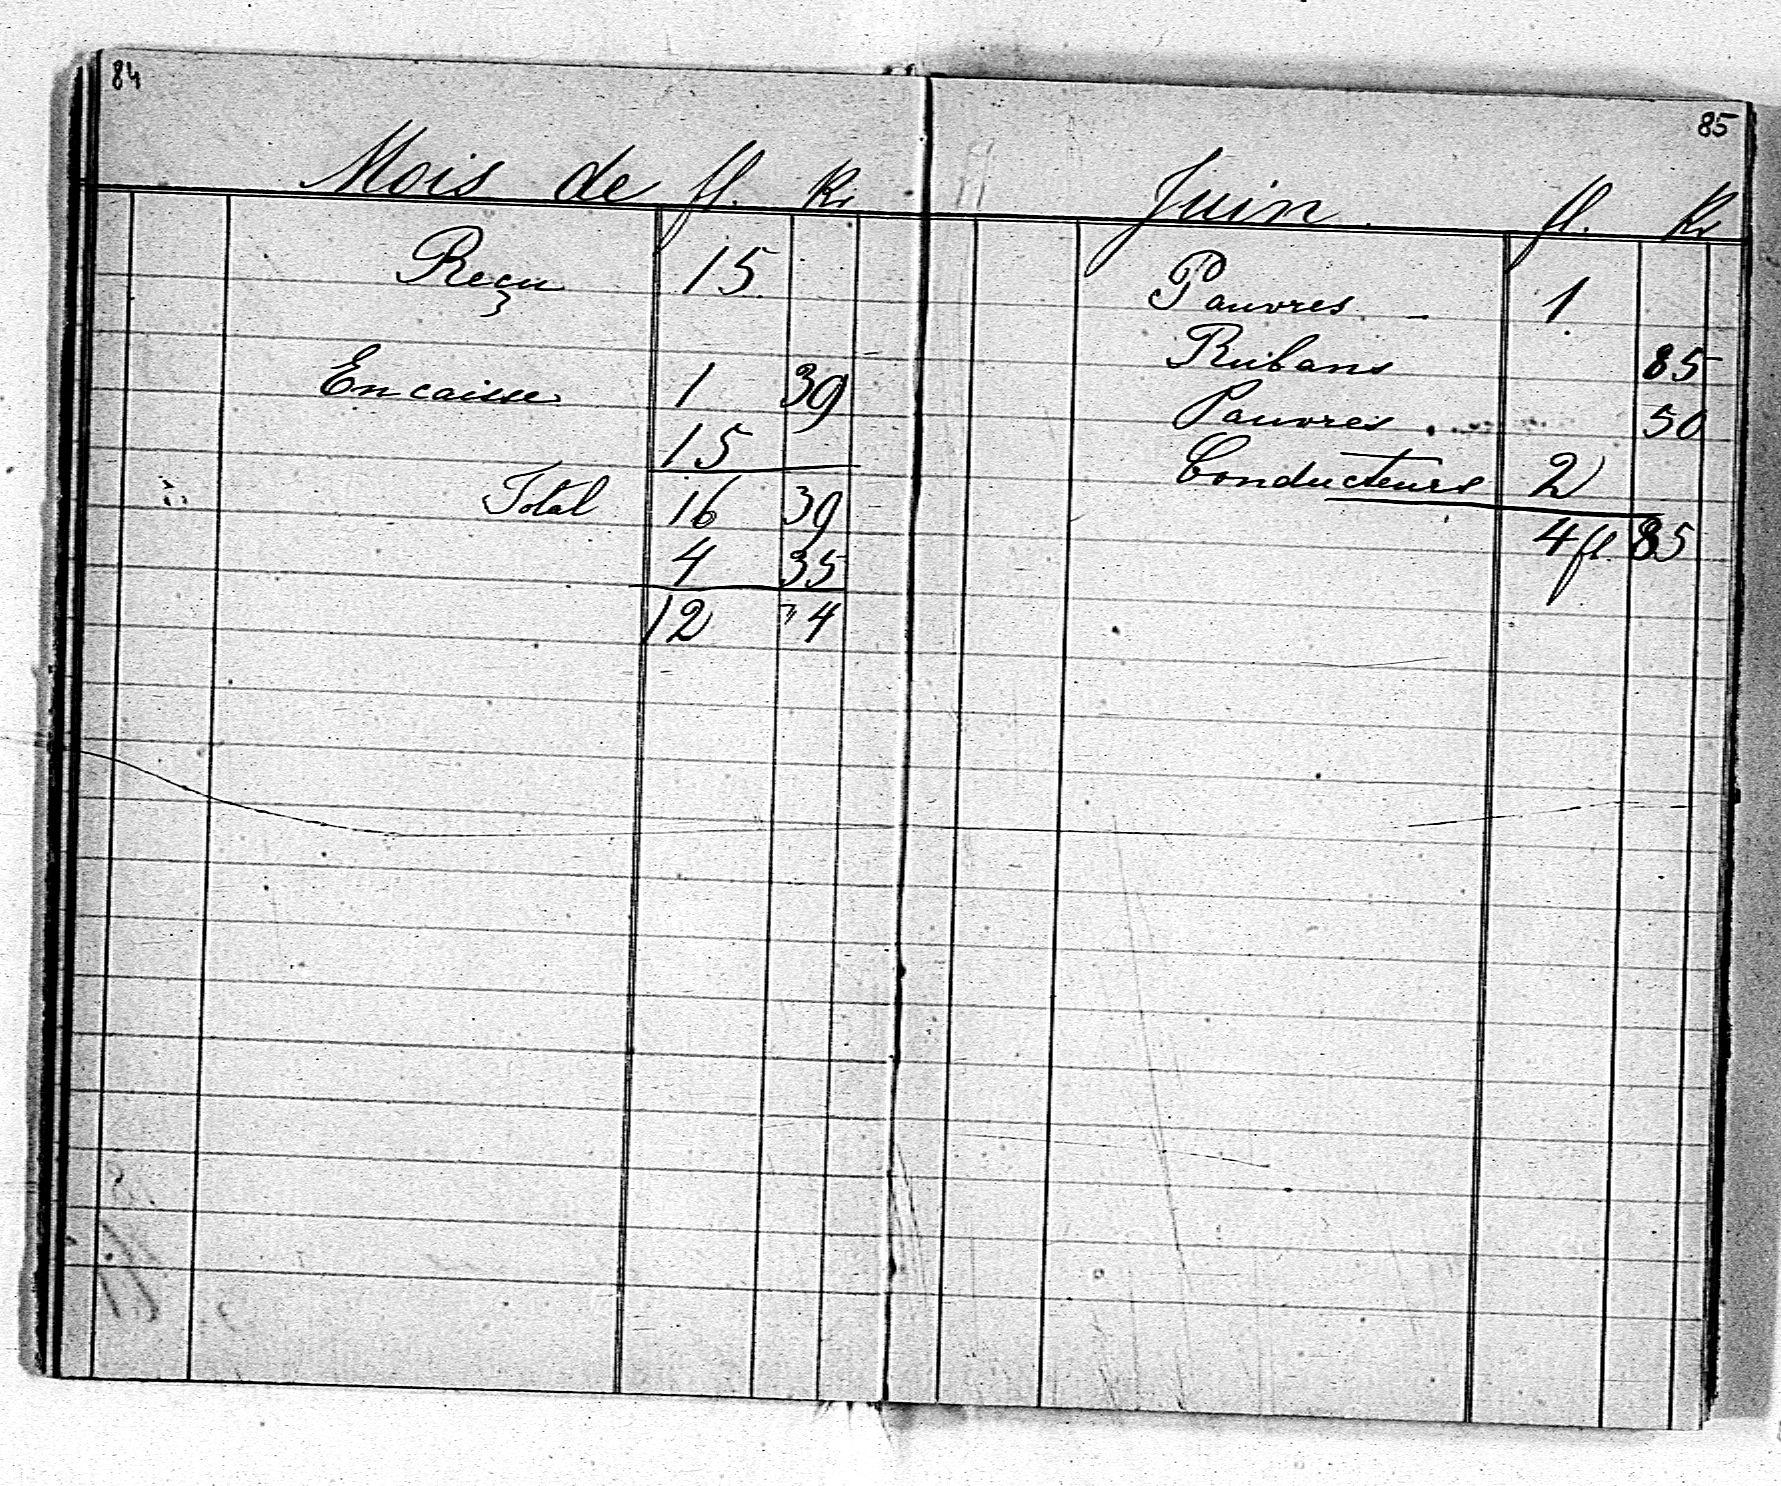 84
Mois de fl. Kr
Reçu 15
Encaisse 1 39
15
Total 16 39
4 35
12 " 4
85
Juin. fl. Kr
Pauvres - 1
Rubans 85
Pauvres 50
Conducteurs 2
4 fl. 85